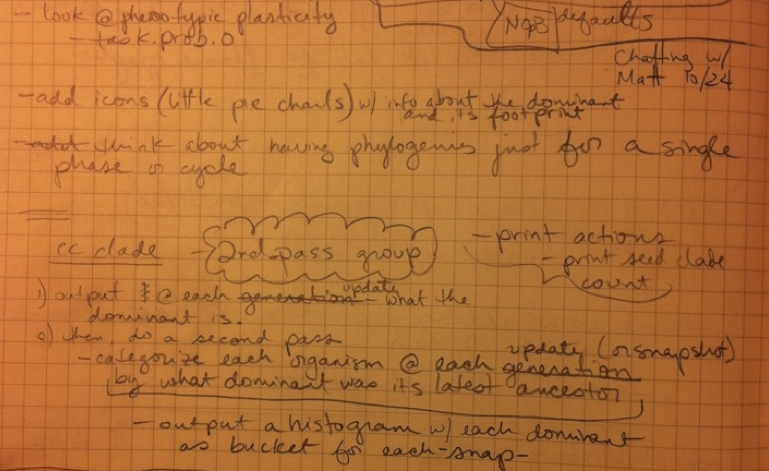 - look @ phenotypic plasticity
- task.prob.0
defaults
Chatting w/
Matt 10/24
- add icons (little pie charts) w/ info about the dominant
and its footprint
- add think about having phylogenies just for a single
phase or cycle
cc clade - 2nd-pass group
- print actions
- print seed clade
count
1) output @ each generation update - what the
dominant is.
2) then do a second pass
- categorize each organism @ each generation update (or snapshot)
by what dominant was its latest ancestor
- output a histogram w/ each dominant
as bucket for each snap-